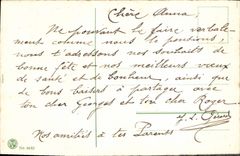 Chère Anna
Ne pouvant le faire verbale-
ment comme nous le pensions,
nous t'adressons nos souhaits de
bonne fête et nos meilleurs vœux
de santé et de bonheur, ainsi que
de bons baisers à partager avec
ton cher Georges et ton cher Roger
Nos amitiés à tes Parents